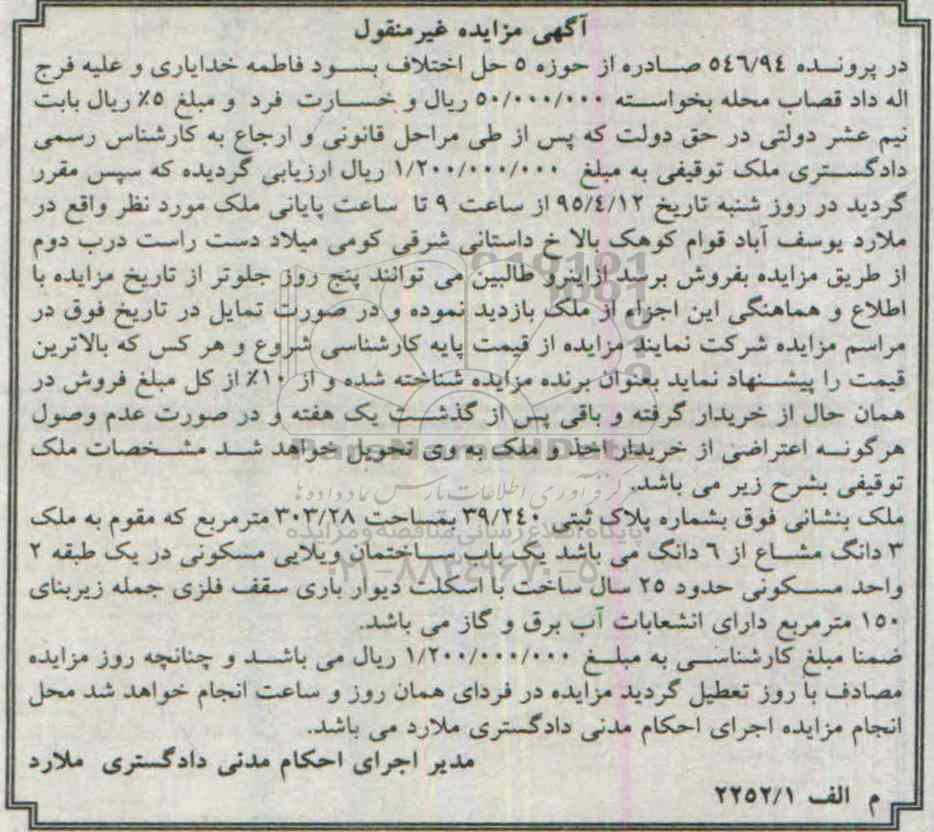 آگهی مزایده غیرمنقول
در پرونده ٥٤٦/٩٤ صادره از حوزه ٥ حل اختلاف بسود فاطمه خدایاری و علیه فرج
اله داد قصاب محله بخواسته ٥٠/٠٠٠/٠٠٠ ریال و خسارت فرد و مبلغ ٥٪ ریال بابت
نیم عشر دولتی در حق دولت که پس از طی مراحل قانونی و ارجاع به کارشناس رسمی
دادگستری ملک توقیفی به مبلغ ١/٢٠٠/٠٠٠/٠٠٠ ریال ارزیابی گردیده که سپس مقرر
گردید در روز شنبه تاریخ ٩٥/٤/١٢ از ساعت ٩ تا ساعت پایانی ملک مورد نظر واقع در
ملارد یوسف آباد قوام کوهک بالا خ داستانی شرقی کومی میلاد دست راست درب دوم
از طریق مزایده بفروش برسد ازاینرو طالبین می توانند پنج روز جلوتر از تاریخ مزایده با
اطلاع و هماهنگی این اجزاء از ملک بازدید نموده و در صورت تمایل در تاریخ فوق در
مراسم مزایده شرکت نمایند مزایده از قیمت پایه کارشناسی شروع و هر کس که بالاترین
قیمت را پیشنهاد نماید بعنوان برنده مزایده شناخته شده و از ١٠٪ از کل مبلغ فروش در
همان حال از خریدار گرفته و باقی پس از گذشت یک هفته و در صورت عدم وصول
هرگونه اعتراضی از خریدار اخذ و ملک به وی تحویل خواهد شد مشخصات ملک
توقیفی بشرح زیر می باشد.
ملک بنشانی فوق بشماره پلاک ثبتی ٣٩/٢٤٠ بمساحت ٣٠٣/٢٨ مترمربع که مقوم به ملک
٣ دانگ مشاع از ٦ دانگ می باشد یک باب ساختمان ویلایی مسکونی در یک طبقه ٢
واحد مسکونی حدود ٢٥ سال ساخت با اسکلت دیوار باری سقف فلزی جمله زیربنای
١٥٠ مترمربع دارای انشعابات آب برق و گاز می باشد.
ضمنا مبلغ کارشناسی به مبلغ ١/٢٠٠/٠٠٠/٠٠٠ ریال می باشد و چنانچه روز مزایده
مصادف با روز تعطیل گردید مزایده در فردای همان روز و ساعت انجام خواهد شد محل
انجام مزایده اجرای احکام مدنی دادگستری ملارد می باشد.
مدیر اجرای احکام مدنی دادگستری ملارد
م الف ٢٢٥٢/١
ParsNamadData
گردآوری اطلاعات پارس نماد داده ها
پایگاه اطلاع رسانی مناقصه و مزایده
٠٢١-٨٨٣٤٩٦٧٠-٥